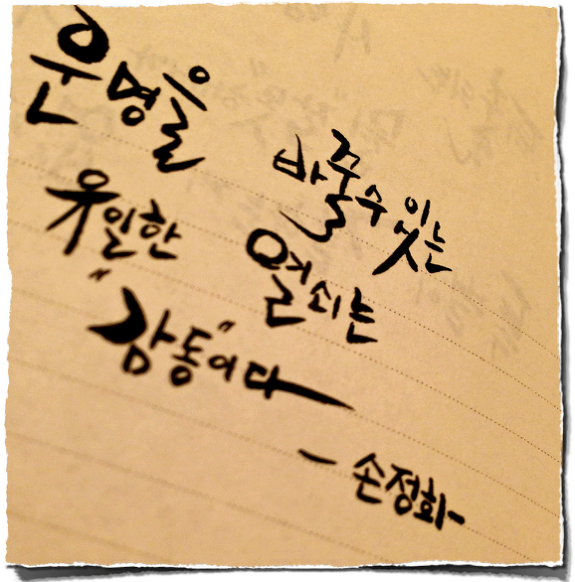 운명을 바꿀수있는
유일한 열쇠는
"감동"이다
- 손정화-